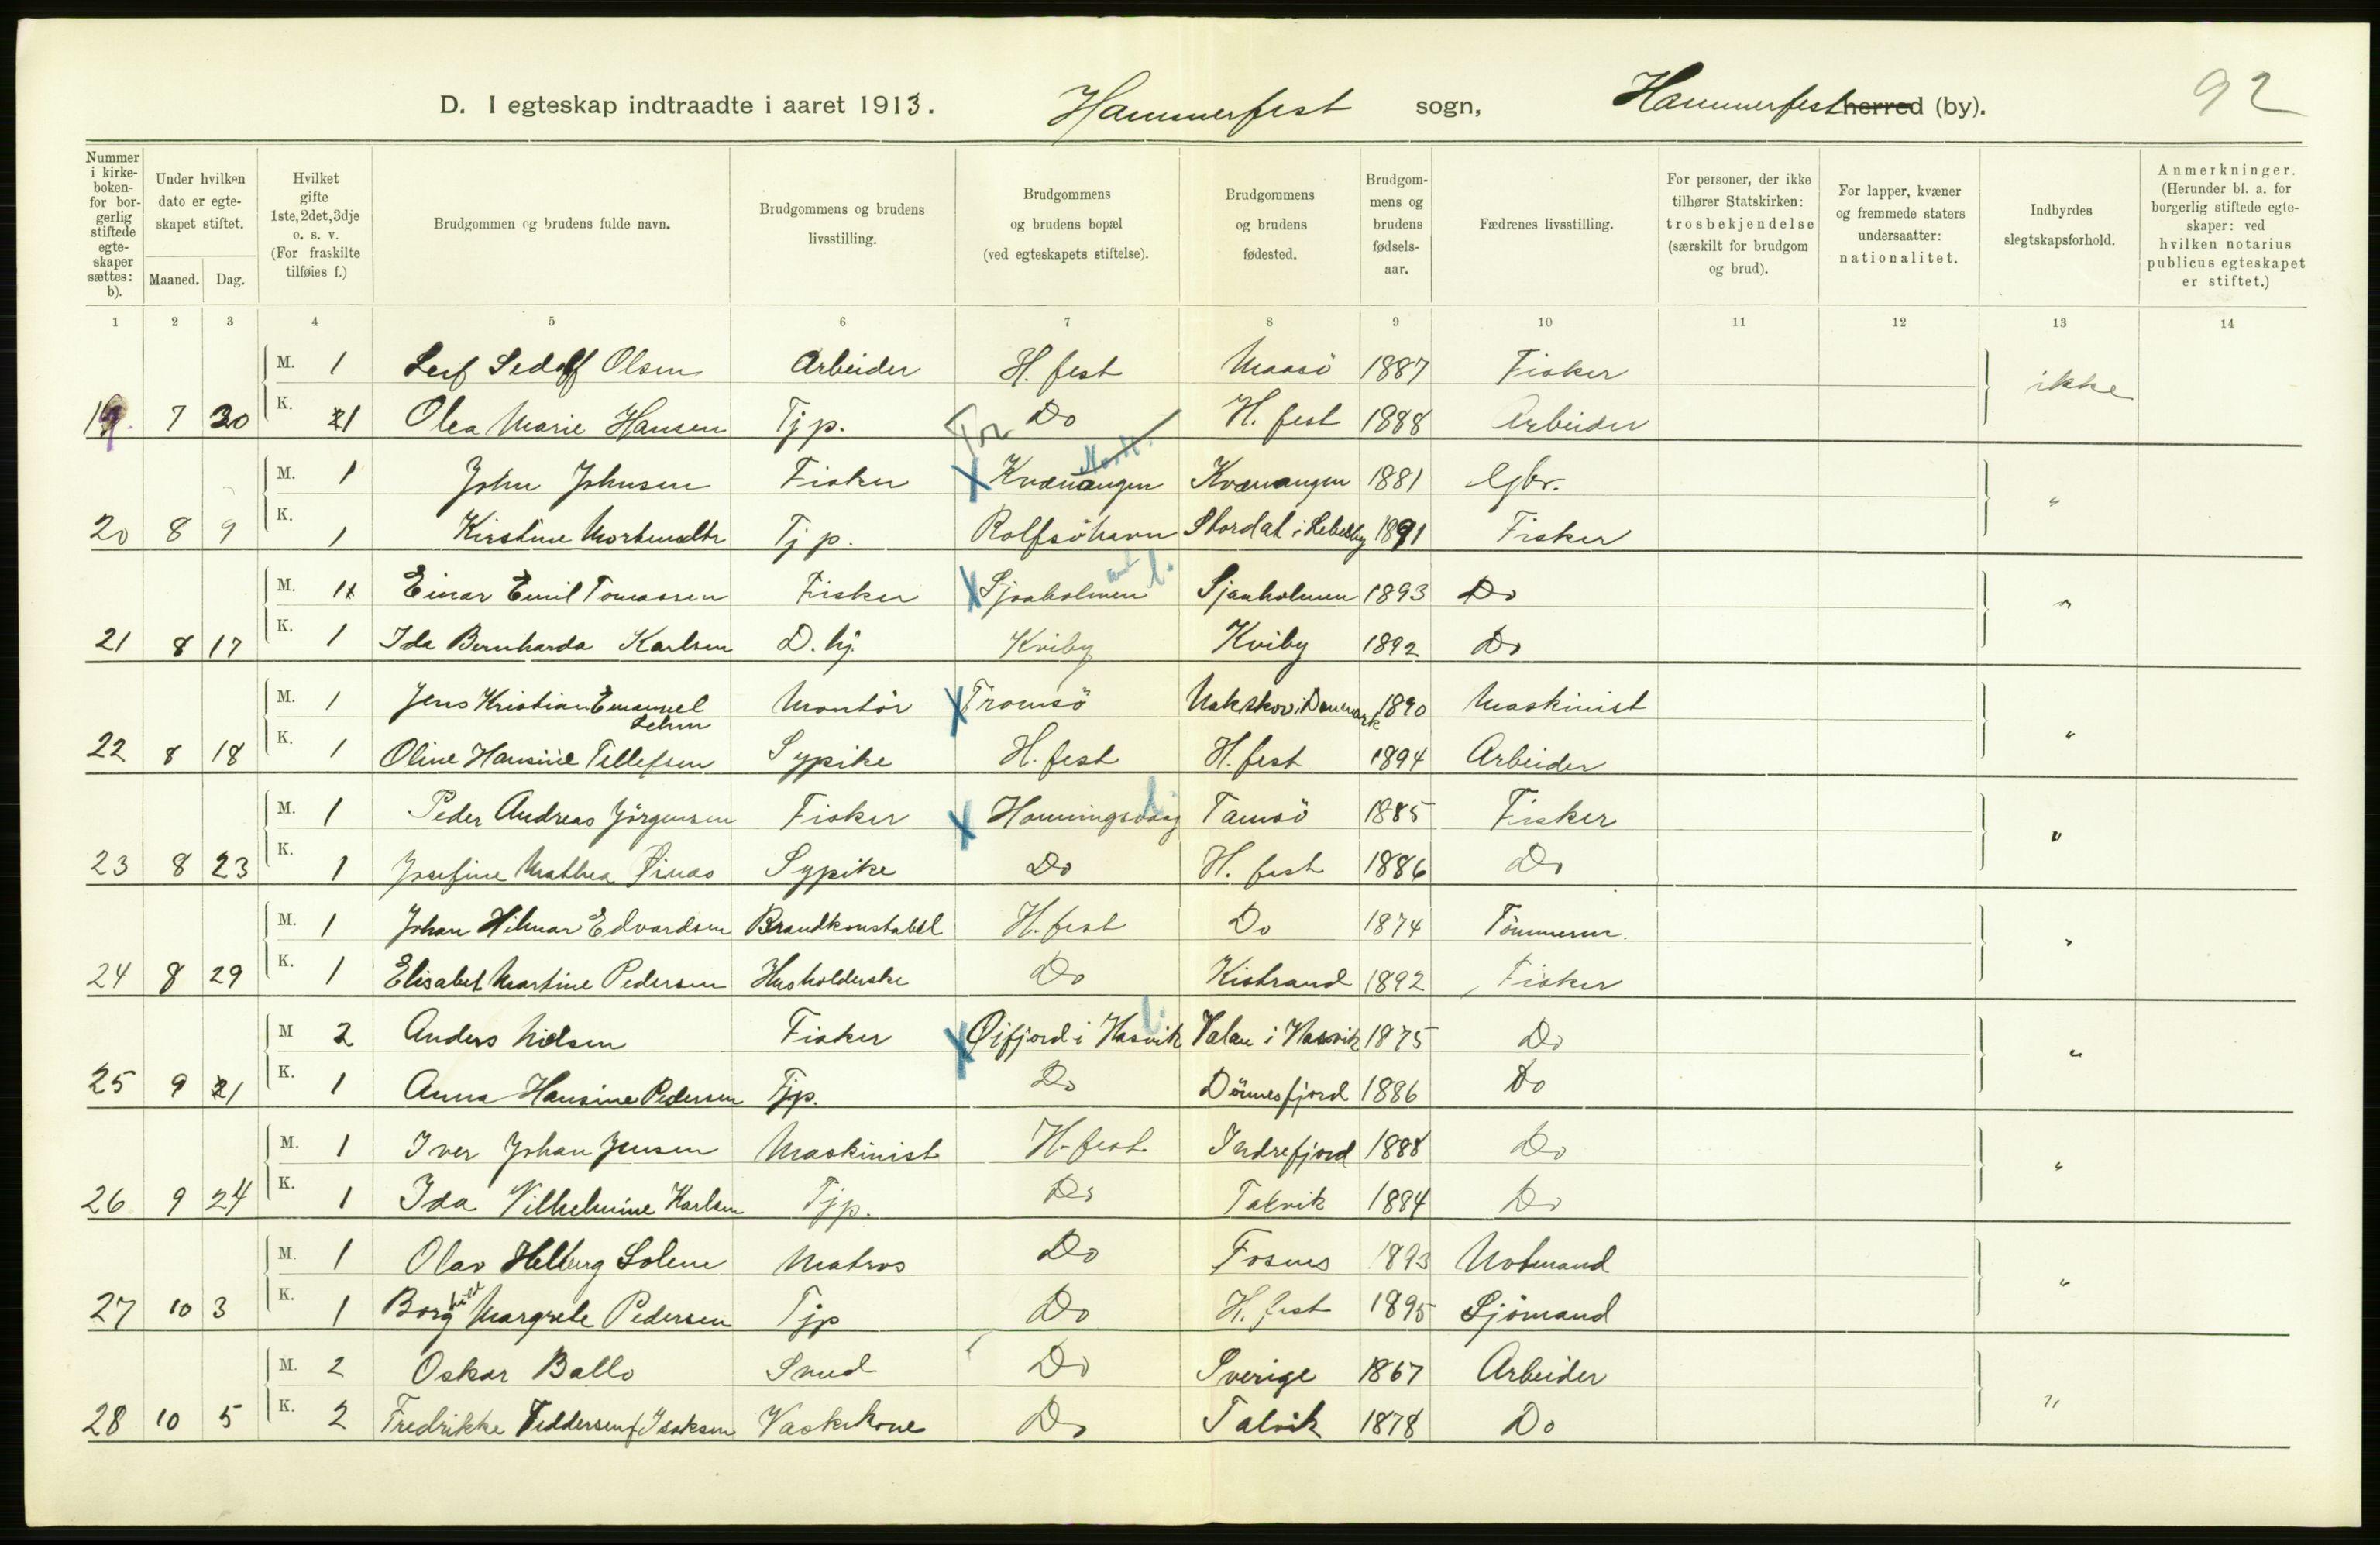 92
D. I egteskap indtraadte i aaret 1913. Hammerfest sogn, Hammerfest herred (by).
Nummer i kirkeboken- for borgerlig stiftede egteskaper sættes: b). | Under hvilken dato er egteskapet stiftet. Maaned. Dag. | Hvilket gifte 1ste, 2det, 3dje o. s. v. (For fraskilte tilføies f.) | Brudgommen og brudens fulde navn. | Brudgommens og brudens livsstilling. | Brudgommens og brudens bopæl (ved egteskapets stiftelse). | Brudgommens og brudens fødested. | Brudgommens og brudens fødselsaar. | Fædrenes livsstilling. | For personer, der ikke tilhører Statskirken: trosbekjendelse (særskilt for brudgom og brud). | For lapper, kvæner og fremmede staters undersaatter: nationalitet. | Indbyrdes slegtskapsforhold. | Anmerkninger. (Herunder bl. a. for borgerlig stiftede egteskaper: ved hvilken notarius publicus egteskapet er stiftet.)
1 2 3 4 5 6 7 8 9 10 11 12 13 14
M. 1 Leif Sedolf Olsen Arbeider H. fest Maasö 1887 Fisker ikke
19. 7 30 K. 1 Olea Marie Hansen Tjp. Do H. fest 1888 Arbeider
M. 1 John Johnsen Fisker X Kvænangen Kvænangen 1881 Gbr. "
20 8 9 K. 1 Kirstine Mortensdtr Tjp. Rolfsöhavn Stordal i Lebesby 1891 Fisker
M. 1 Einar Emil Tomassen Fisker X Sjaaholmen Sjaaholmen 1893 Do "
21 8 17 K. 1 Ida Bernharda Karlsen D. hj. Kviby Kviby 1892 Do
M. 1 Jens Kristian Emanuel Lehm Montör X Tromsö Nakskov i Danmark 1890 Maskinist "
22 8 18 K. 1 Oline Hansine Tellefsen Sypike H. fest H. fest 1894 Arbeider
M. 1 Peder Andreas Jörgensen Fisker X Honningsvaag Tamsö 1885 Fisker "
23 8 23 K. 1 Josefine Mathea Öinas Sypike Do H. fest 1886 Do
M. 1 Johan Hilmar Edvardsen Brandkonstabel H. fest Do 1874 Tömmerm. "
24 8 29 K. 1 Elisabet Martine Pedersen Husholderske Do Kistrand 1892 Fisker
M 2 Anders Nielsen Fisker X Øifjord i Hasvik Valan i Hasvik 1875 Do "
25 9 21 K. 1 Anna Hansine Pedersen Tjp. Do Dönnesfjord 1886 Do
M. 1 Iver Johan Jensen Maskinist H. fest Indrefjord 1888 Do "
26 9 24 K. 1 Ida Vilhelmine Karlsen Tjp. Do Talvik 1894 Do
M. 1 Olav Helberg Solem Matros Do Fosnes 1893 Notmand "
27 10 3 K. 1 Borghild Margrete Pedersen Tjp Do H. fest 1895 Sjömand
M. 2 Oskar Ballo Smed Do Sverige 1867 Arbeider "
28 10 5 K. 2 Fredrikke Feddersen f Isaksen Vaskekone Do Talvik 1878 Do